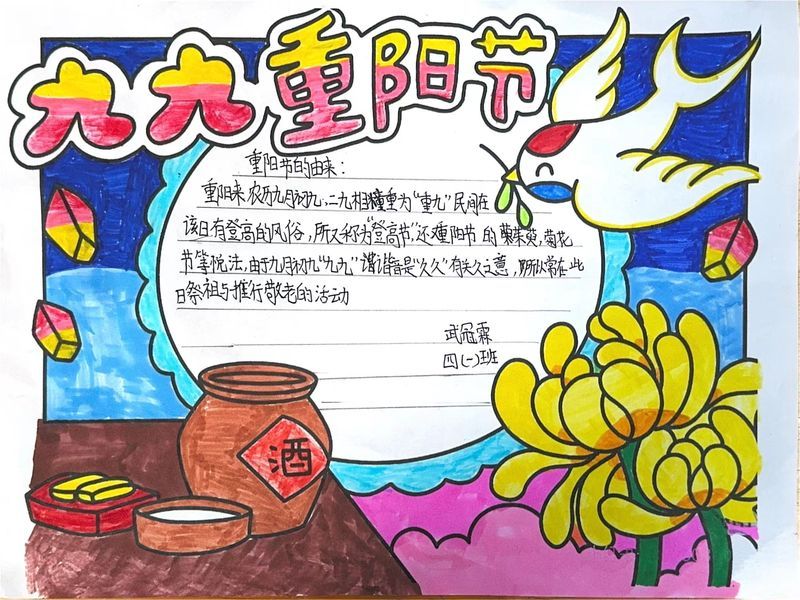 九九重阳节
重阳节的由来：
重阳来农历九月初九，二九相重为“重九”民间在
该日有登高的风俗，所以称为“登高节”，还重阳节的茱萸，菊花
节等悦法，由于九月初九“九九”谐音是“久久”有夫久之意，所以常在此
日祭祖与推行敬老的活动
武冠霖
四（一）班
酒